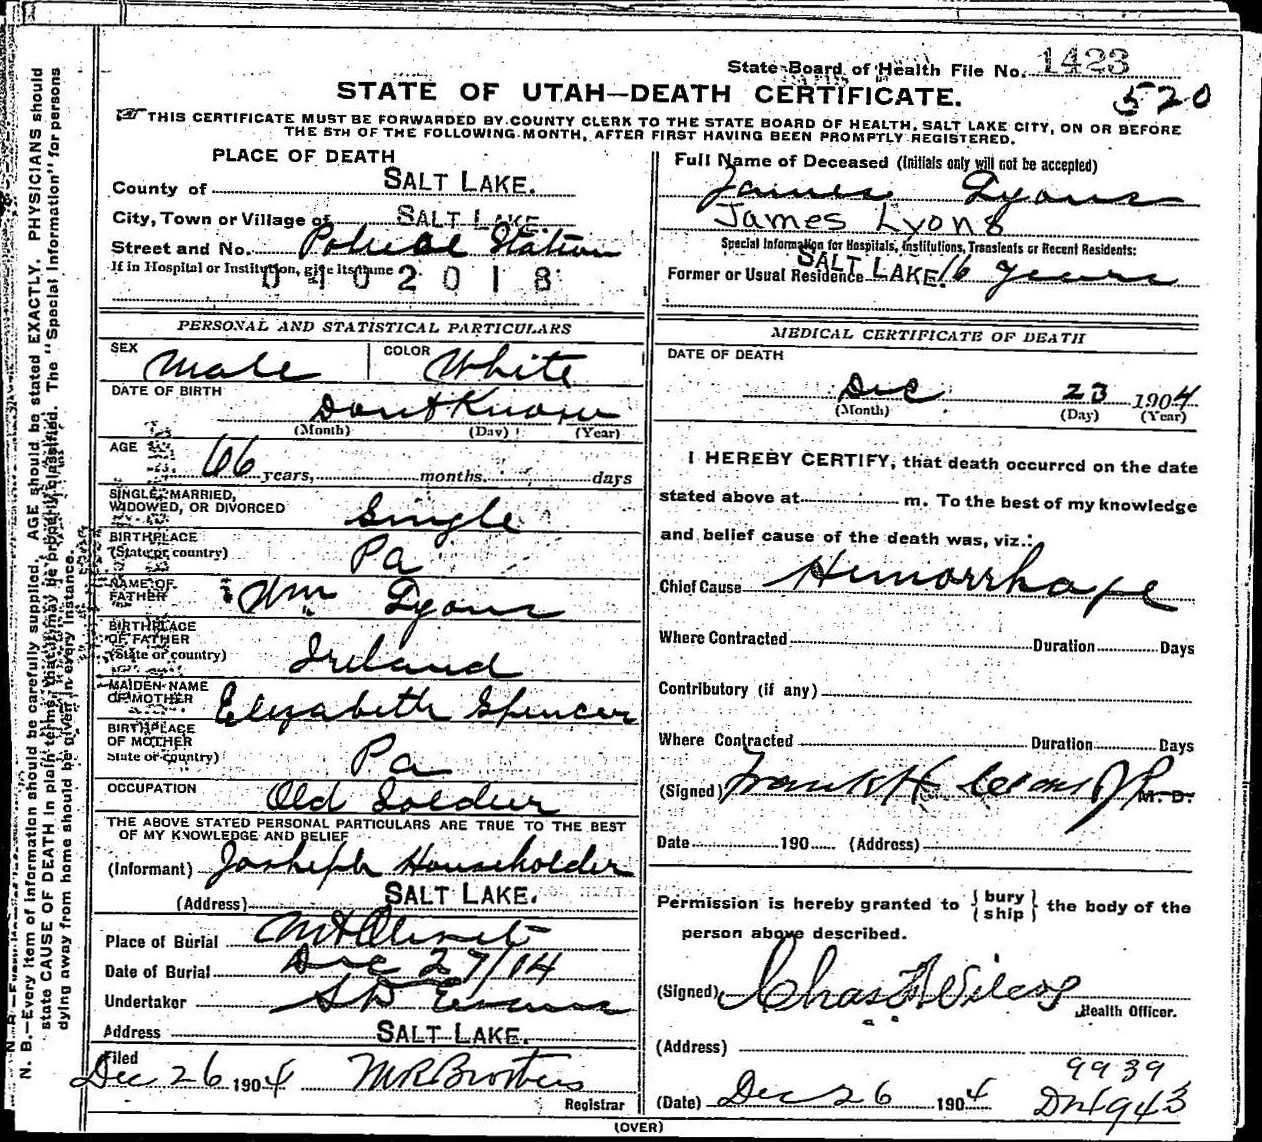 State Board of Health File No. 1423
520
STATE OF UTAH—DEATH CERTIFICATE.
THIS CERTIFICATE MUST BE FORWARDED BY COUNTY CLERK TO THE STATE BOARD OF HEALTH, SALT LAKE CITY, ON OR BEFORE
THE 5TH OF THE FOLLOWING MONTH, AFTER FIRST HAVING BEEN PROMPTLY REGISTERED.
PLACE OF DEATH
County of SALT LAKE.
City, Town or Village of SALT LAKE
Street and No. Station
If in Hospital or Institution, give its name
0402018
Full Name of Deceased (Initials only will not be accepted)
James Lyons
James Lyons
Special Information for Hospitals, Institutions, Transients or Recent Residents:
Former or Usual Residence SALT LAKE. 16 years
PERSONAL AND STATISTICAL PARTICULARS
SEX Male COLOR White
DATE OF BIRTH Dont Know
(Month) (Day) (Year)
AGE 66 years, months. days
SINGLE, MARRIED,
WIDOWED, OR DIVORCED Single
BIRTHPLACE
(State or country) Pa
NAME OF
FATHER Wm Lyons
BIRTHPLACE
OF FATHER
(State or country) Ireland
MAIDEN NAME
OF MOTHER Elizabeth Spencer
BIRTHPLACE
OF MOTHER
State or country) Pa
OCCUPATION Old Soldier
THE ABOVE STATED PERSONAL PARTICULARS ARE TRUE TO THE BEST
OF MY KNOWLEDGE AND BELIEF
(Informant) Josheph Householder
(Address) SALT LAKE.
Place of Burial Mt Olivet
Date of Burial Dec 27/04
Undertaker S D Evans
Address SALT LAKE.
Filed
Dec 26 1904 M R Brothers
Registrar
MEDICAL CERTIFICATE OF DEATH
DATE OF DEATH
Dec 23 1904
(Month) (Day) (Year)
I HEREBY CERTIFY, that death occurred on the date
stated above at m. To the best of my knowledge
and belief cause of the death was, viz.:
Chief Cause Hemorrhage
Where Contracted Duration Days
Contributory (if any)
Where Contracted Duration Days
(Signed) Frank H M. D.
Date 190 (Address)
Permission is hereby granted to {bury
ship} the body of the
person above described.
(Signed) Chas Wilcox
Health Officer.
(Address)
9939
(Date) Dec 26 1904
943
(OVER)
N. B.—Every item of information should be carefully supplied. AGE should be stated EXACTLY. PHYSICIANS should
state CAUSE OF DEATH in plain terms, that it may be properly classified. The "Special Information" for persons
dying away from home should be given in every instance.